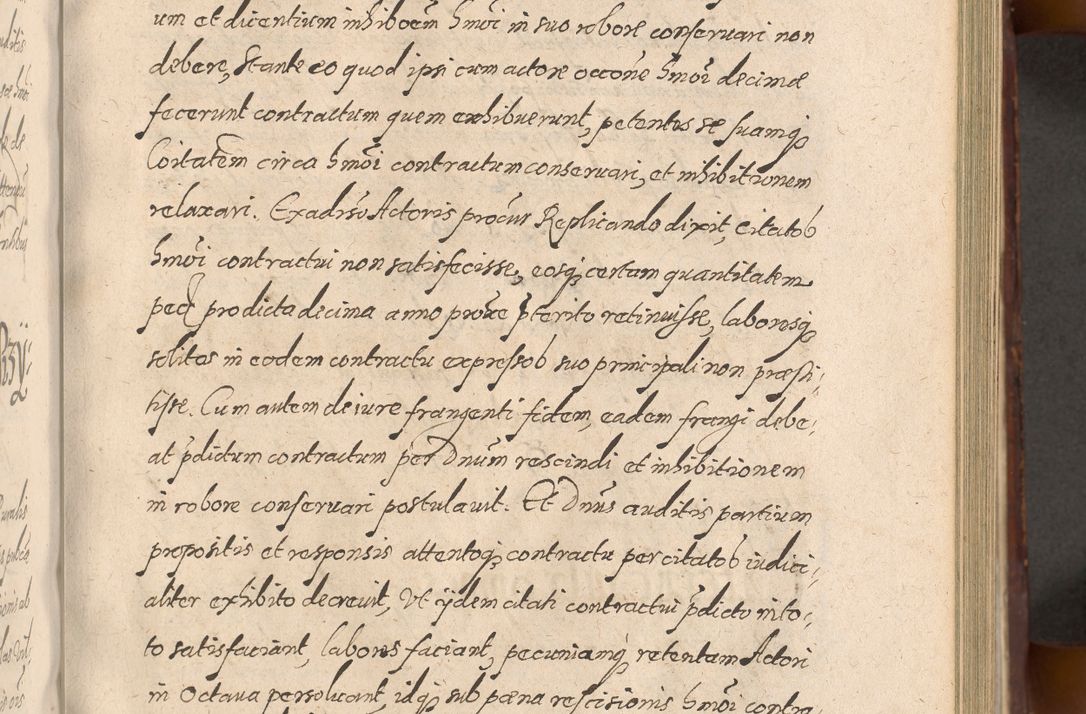 um et dicentium inhiboēm hmōi in suo robore conseruari non
debere, stante eo quod ipsi cum actore occōne hmōi decimæ
fecerunt contractum quem exhibuerunt, petentes se suamq̧
Coitatem circa hmōi contractum conseruari, et inhibitionem
relaxari. Ex adūso Actoris procūr Replicando dixit, citatos
hmōi contractui non satisfecisse, eosq̧ certam quantitatem
pecū pro dicta decima anno proxē p̄terito retinuisse, laboresq̧
solitos in eodem contractu expressos suo principali non præsti-
tisse. Cum autem de iure frangenti fidem, eadem frangi debe-
at p̄dictum contractum per Dnūm rescindi et inhibitionem
in robore conseruari postulauit. Et Dnūs auditis partium
propositis et responsis attentoq̧ contractu per citatos iudici-
aliter exhibito decreuit, Vt ijdem citati contractui p̄dicto in to-
to satisfaciant, labores faciant, pecuniamq̧ retentam Actori
in Octaua persoluant, idq̧ sub pæna rescisionis hmōi contra